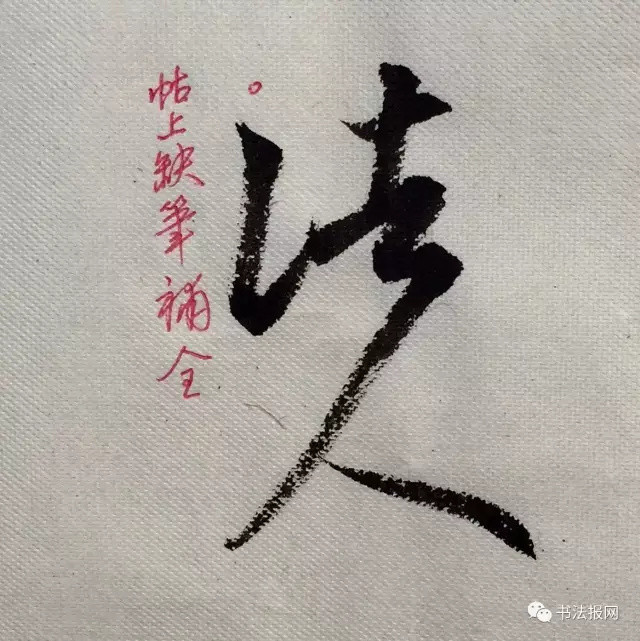 帖上缺筆補全
书法报网